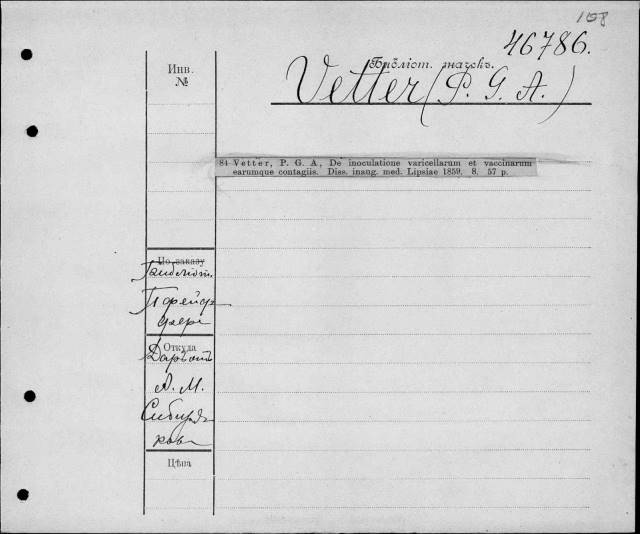 108
46786.
Библіот. значекъ.
Vetter (P. G. A.)
Инв.
№
84 Vetter, P. G. A., De inoculatione varicellarum et vaccinarum
earumque contagiis. Diss. inaug. med. Lipsiae 1859. 8. 57 p.
По заказу
Библіот.
Пфейф-
фера
Откуда
Даръ отъ
А. М.
Сибиря-
кова
Цѣна